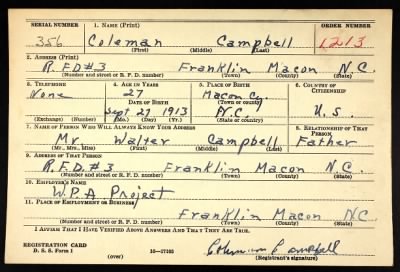 SERIAL NUMBER 1. NAME (Print) ORDER NUMBER
356 Coleman Campbell 1213
(First) (Middle) (Last)
2. ADDRESS (Print)
R.F.D#3 Franklin Macon N.C.
(Number and street or R. F. D. number) (Town) (County) (State)
3. TELEPHONE 4. AGE IN YEARS 5. PLACE OF BIRTH 6. COUNTRY OF CITIZENSHIP
None 27 Macon Co.
DATE OF BIRTH (Town or county)
Sept 27 1913 N.C. U.S.
(Exchange) (Number) (Mo.) (Day) (Yr.) (State or country)
7. NAME OF PERSON WHO WILL ALWAYS KNOW YOUR ADDRESS 8. RELATIONSHIP OF THAT PERSON
Mr. Walter Campbell Father
(Mr., Mrs., Miss) (First) (Middle) (Last)
9. ADDRESS OF THAT PERSON
R.F.D.#3 Franklin Macon N.C.
(Number and street or R. F. D. number) (Town) (County) (State)
10. EMPLOYER'S NAME
W.P.A Project
11. PLACE OF EMPLOYMENT OR BUSINESS
Franklin Macon NC
(Number and street or R. F. D. number) (Town) (County) (State)
I AFFIRM THAT I HAVE VERIFIED ABOVE ANSWERS AND THAT THEY ARE TRUE.
REGISTRATION CARD
D. S. S. Form 1 16—17105 Coleman Campbell
(over) (Registrant's signature)